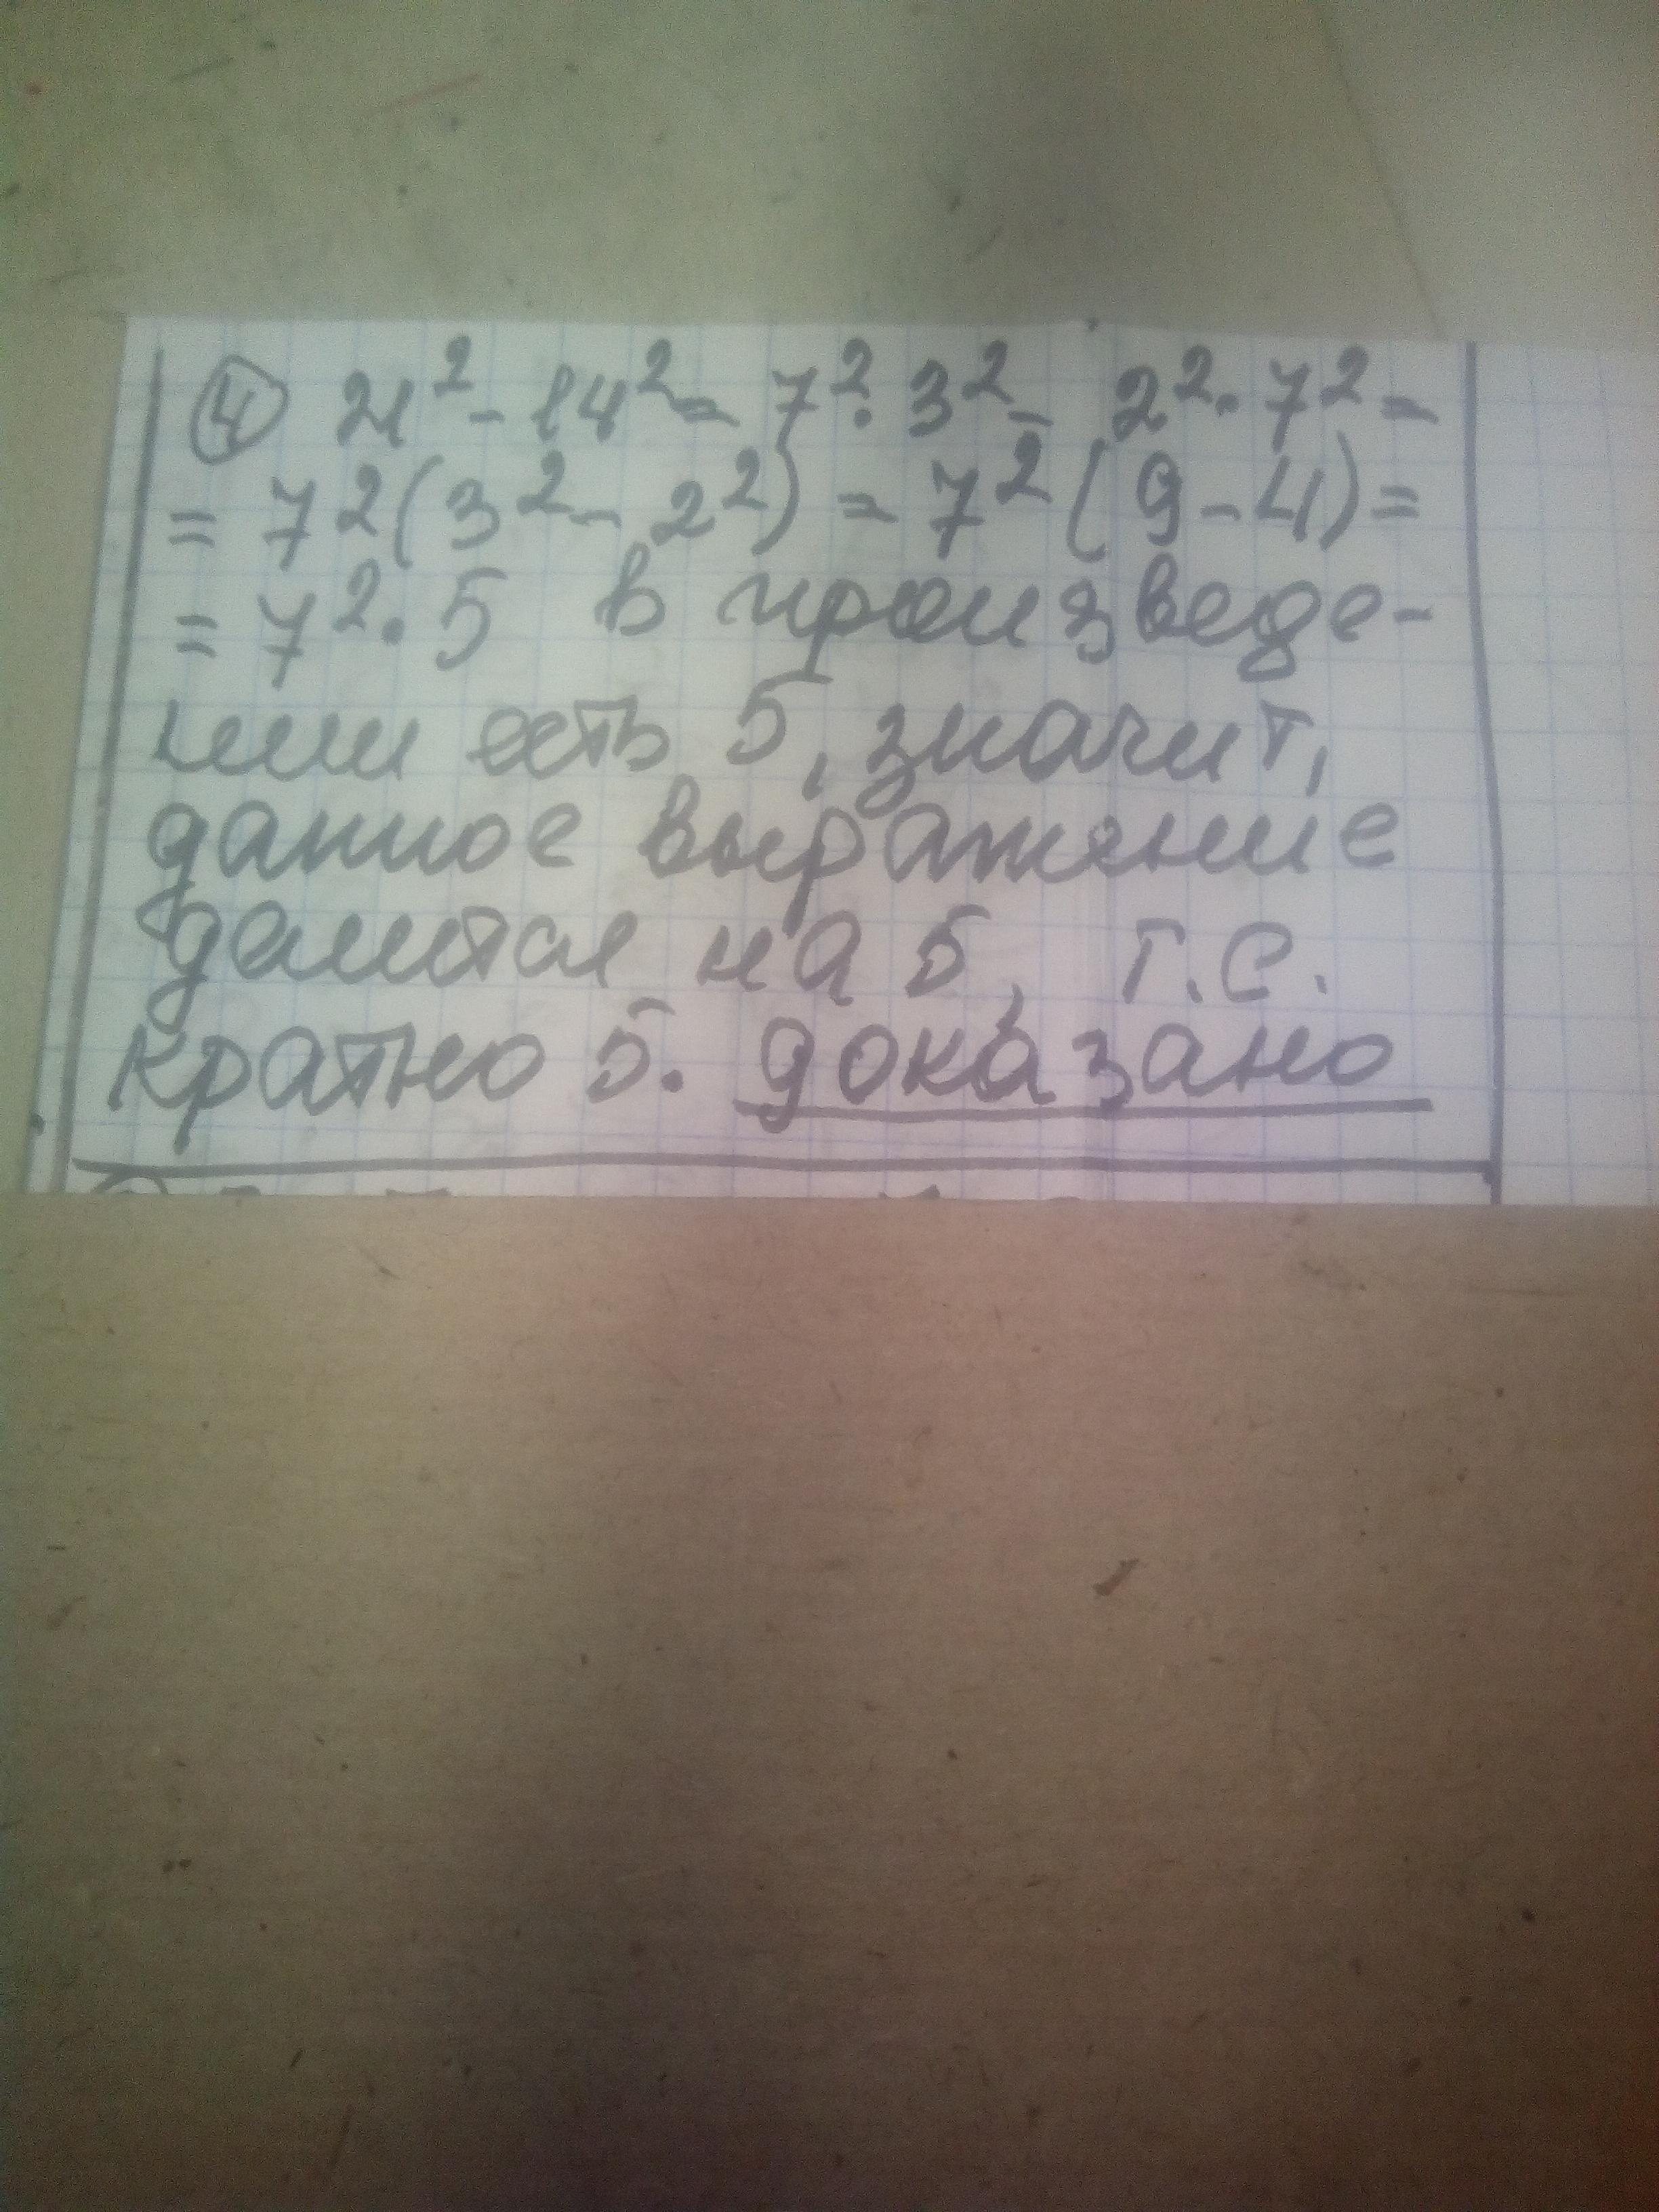 ④ 21² - 14² = 7² · 3² - 2² · 7² =
= 7² (3² - 2²) = 7² (9 - 4) =
= 7² · 5 в произведе-
нии есть 5, значит,
данное выражение
делится на 5, т.е.
кратно 5. доказано